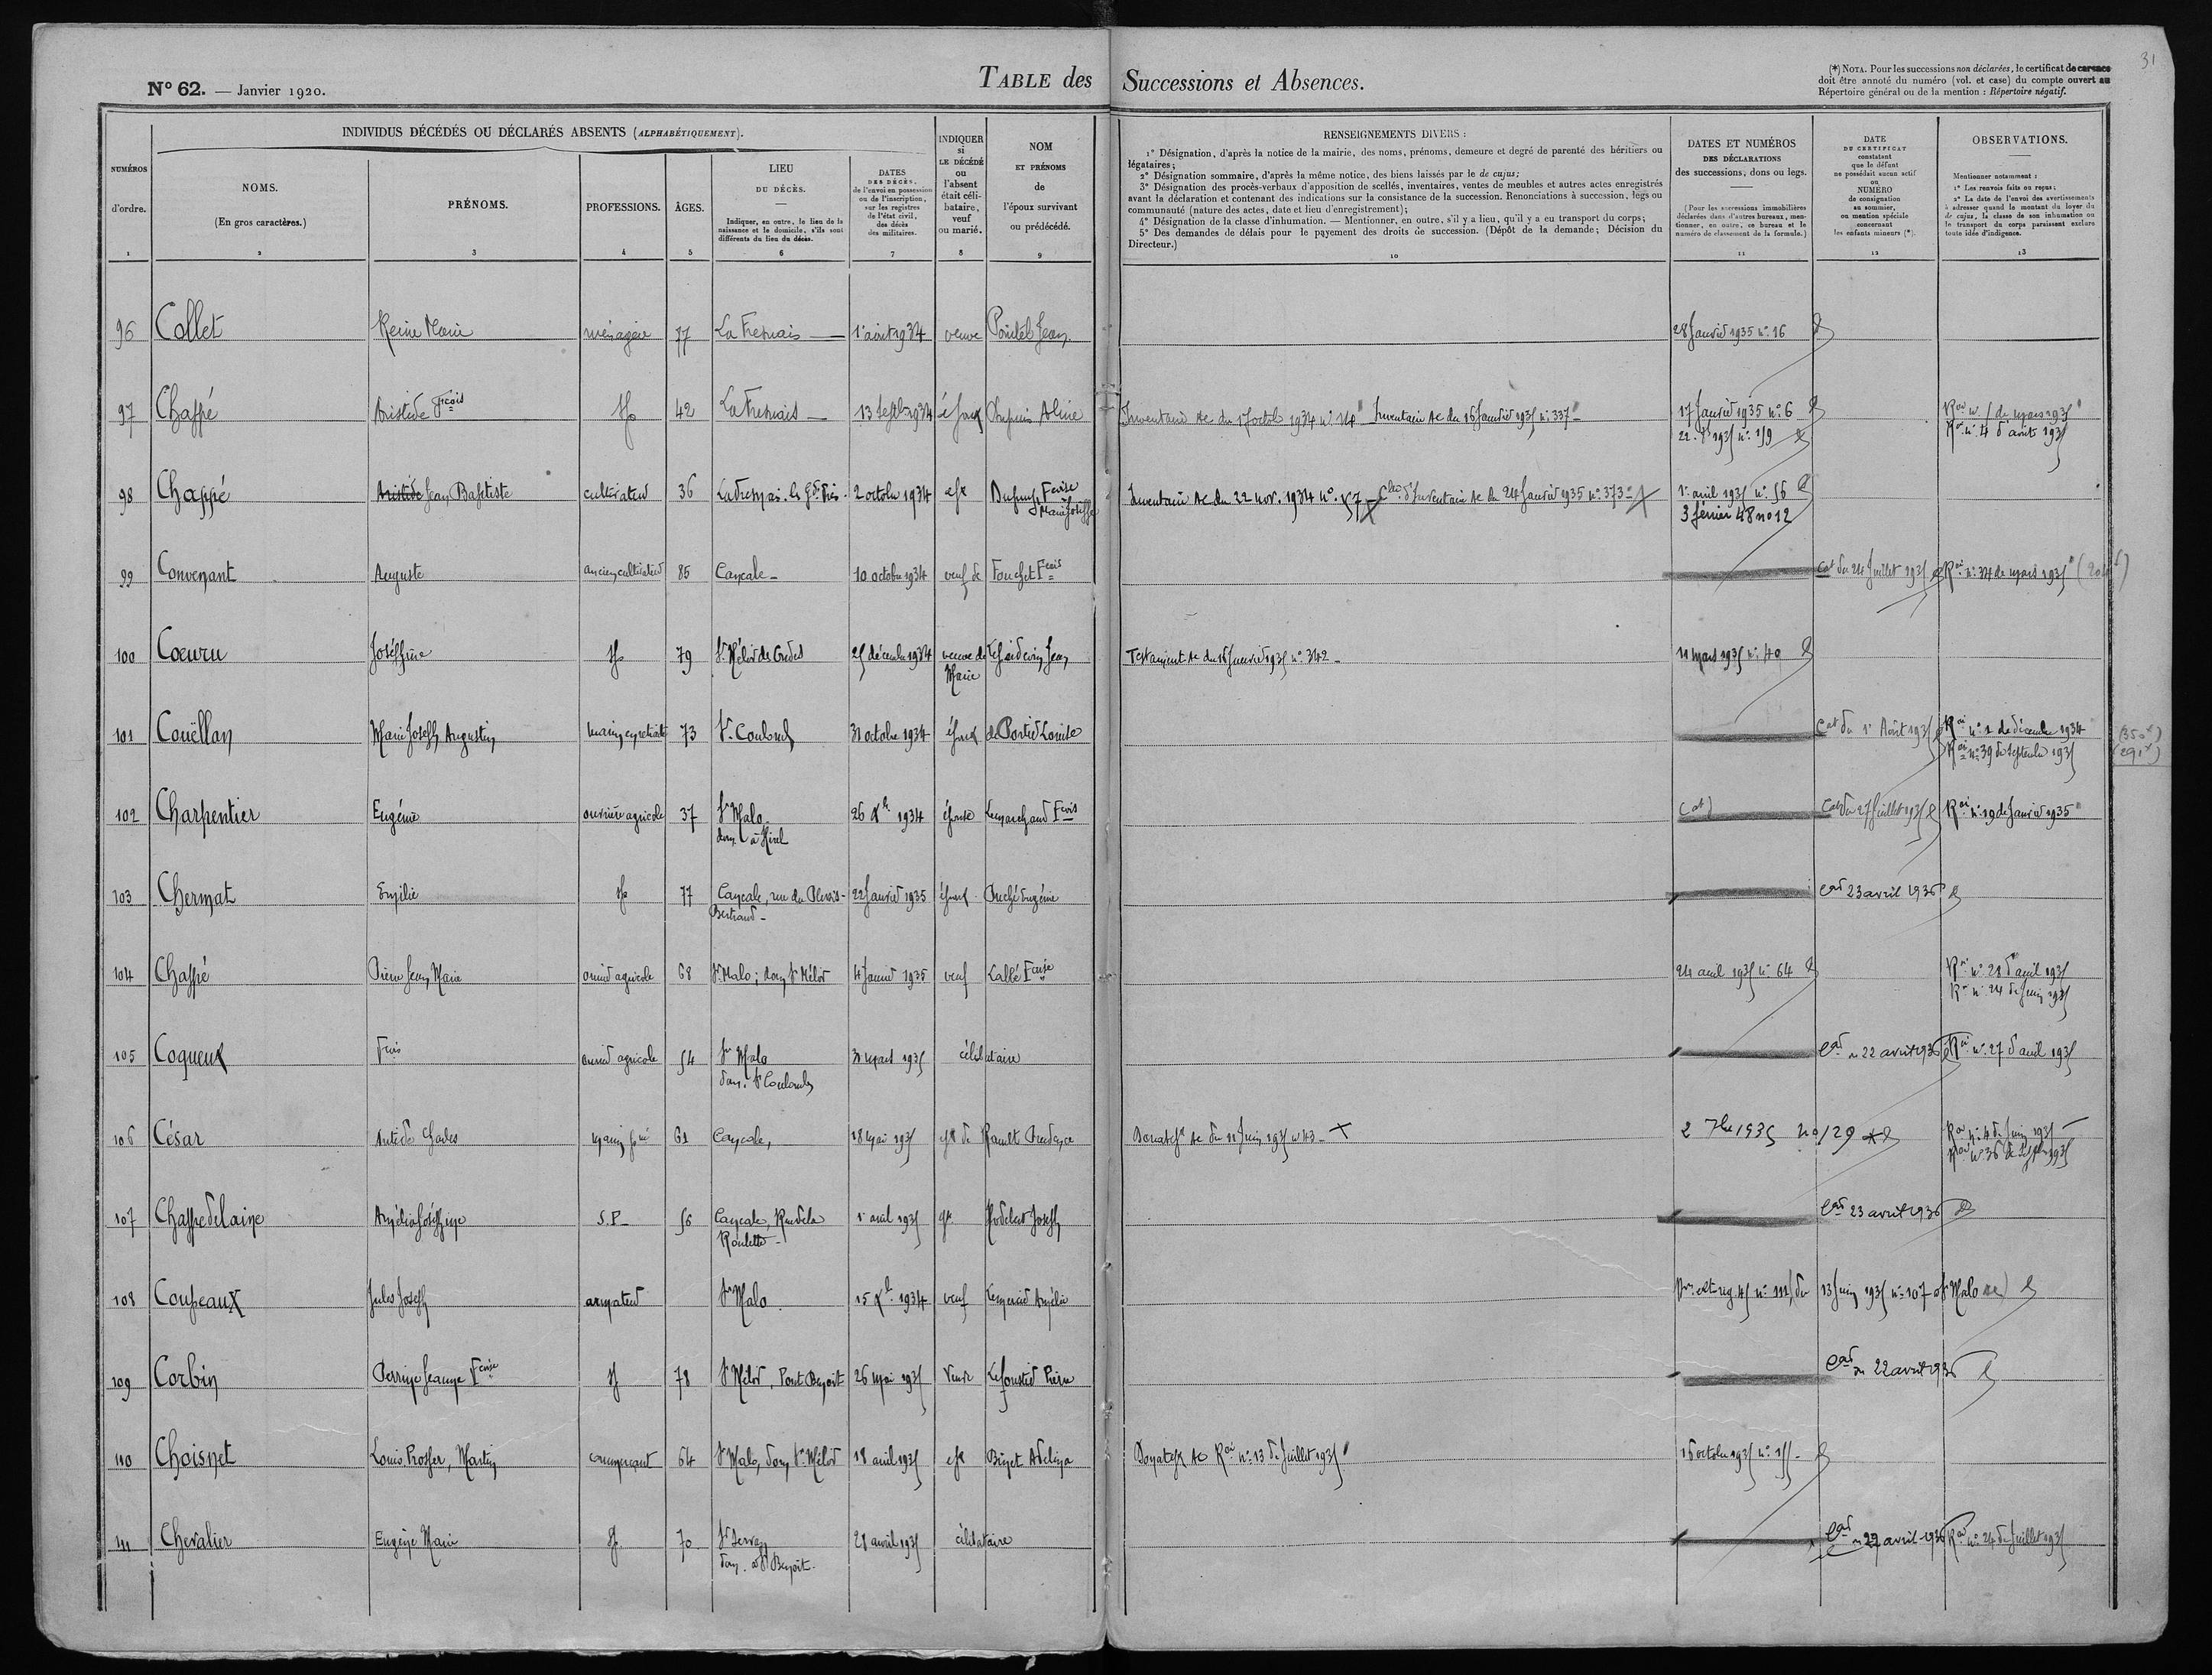 31
N° 62. — Janvier 1920.
TABLE des Successions et Absences.
(*) NOTA. Pour les successions non déclarées, le certificat de carence
doit être annoté du numéro (vol. et case) du compte ouvert au
Répertoire général ou de la mention : Répertoire négatif.
INDIVIDUS DÉCÉDÉS OU DÉCLARÉS ABSENTS (ALPHABÉTIQUEMENT).
NUMÉROS d'ordre. 1
NOMS. (En gros caractères.) 2
PRÉNOMS. 3
PROFESSIONS. 4
ÂGES. 5
LIEU DU DÉCÈS. — Indiquer, en outre, le lieu de la naissance et le domicile, s'ils sont différents du lieu du décès. 6
DATES DES DÉCÈS, de l'envoi en possession ou de l'inscription, sur les registres de l'état civil, des décès des militaires. 7
INDIQUER si LE DÉCÉDÉ ou l'absent était célibataire, veuf ou marié. 8
NOM ET PRÉNOMS de l'époux survivant ou prédécédé. 9
RENSEIGNEMENTS DIVERS :
1° Désignation, d'après la notice de la mairie, des noms, prénoms, demeure et degré de parenté des héritiers ou
légataires;
2° Désignation sommaire, d'après la même notice, des biens laissés par le de cujus;
3° Désignation des procès-verbaux d'apposition de scellés, inventaires, ventes de meubles et autres actes enregistrés
avant la déclaration et contenant des indications sur la consistance de la succession. Renonciations à succession, legs ou
communauté (nature des actes, date et lieu d'enregistrement);
4° Désignation de la classe d'inhumation. — Mentionner, en outre, s'il y a lieu, qu'il y a eu transport du corps;
5° Des demandes de délais pour le payement des droits de succession. (Dépôt de la demande; Décision du
Directeur.)
10
DATES ET NUMÉROS DES DÉCLARATIONS des successions, dons ou legs. — (Pour les successions immobilières déclarées dans d'autres bureaux, mentionner, en outre, ce bureau et le numéro de classement de la formule.) 11
DATE DU CERTIFICAT constatant que le défunt ne possédait aucun actif ou NUMÉRO de consignation au sommier, ou mention spéciale concernant les enfants mineurs (*). 12
OBSERVATIONS. — Mentionner notamment : 1° Les renvois faits ou reçus; 2° La date de l'envoi des avertissements à adresser quand le montant du loyer du de cujus, la classe de son inhumation ou le transport du corps paraissent exclure toute idée d'indigence. 13
96 Collet Reine Marie ménagère 77 La Fresnais 1er août 1934 veuve Jean 28 Janvier 1935 n° 16
97 Chappé Aristide Fcois 42 La Fresnais 13 Septbre 1934 époux Dupuis Aline Inventaire Ac du 17 octob 1934 Inventaire Ac du 16 Janvier 1935 n° 337 17 Janvier 1935 n° 6
22 1935 n° 119 Roi n° 4 d'août 1935
98 Chappé Aristide Jean Baptiste cultivateur 36 La Fresnais 2 octobre 1934 épx Dupuis Fcoise
Marie Josèphe
Inventaire Ac du 22 nov. 1934 n° 57 d'Inventaire Ac du 24 Janvier 1935 n° 373 1er avril 1935 n° 56
3 février 48 n° 12
99 Convenant Auguste ancien cultivateur 85 Cancale 10 octobre 1934 veuf de Fouchet Fcoise Cat du 24 Juillet 1935 Roi n° 34 de mars 1935
100 Coeuru Joséphine 79 St Méloir des Ondes 25 décembre 1934 veuve de Jean
Marie
Testament Ac du 16 Janvier 1935 n° 342 11 mars 1935 n° 40
101 Couëllan Marie Joseph Augustin marin en retraite 73 St Coulomb 31 octobre 1934 époux de Portier Louise Cat du 1er Août 1935 Roi n° 1 de décembre 1934 (350f)
Roi n° 39 de septembre 1935 (291f)
102 Charpentier Eugénie ouvrière agricole 37 St Malo
dom. à Hirel
26 Xbre 1934 épouse Lemarchand Fcois (cat) Cat du 27 Juillet 1935 Roi n° 19 de Janvier 1935
103 Chermat Emilie 77 Cancale, rue du Plessis-
Bertrand
22 Janvier 1935 épouse Eugénie Cat 23 avril 1936
104 Chappé Pierre Jean Marie ouvrier agricole 68 St Malo; dom St Méloir 4 Janvier 1935 veuf Labbé Fcoise 24 avril 1935 n° 64 Roi n° 28 d'avril 1935
Roi n° 24 de Juin 1935
105 Coqueux Fcois ouvrier agricole 54 St Malo
dom. St Coulomb
31 mars 1935 célibataire Cat du 22 avril 1936 Roi n° 27 d'avril 1935
106 César Charles marin 61 Cancale, 18 mai 1935 épx de Rault Prudence Ac du 11 Juin 1935 n° 43 2 7bre 1935 no 129 Roi n° 4 de Juin 1935
Roi n° 36 de 1935
107 Chappedelaine Amélia Joséphine S.P. 56 Cancale, Rue de la
Roulette
1er avril 1935 épx Joseph Cat 23 avril 1936
108 Coupeaux Jules Joseph armateur St Malo 15 Xbre 1934 veuf Amélie n° 111, du 13 Juin 1935 n° 107 St Malo
109 Corbin Perrine Jeanne Fcoise 78 St Méloir, Pont Benoît 26 mai 1935 veuve Pierre Cat du 22 avril 1936
110 Choisnet Louis Prosper, Martin commerçant 64 St Malo, dom St Méloir 18 avril 1935 épx Binet Adelina Ac Roi n° 13 de Juillet 1935 16 octobre 1935 n° 155
111 Chevalier Eugène Marie 70 St Servan
dom. à St Benoît
28 avril 1935 célibataire Cat du 27 avril 1936 Roi n° 24 de Juillet 1935